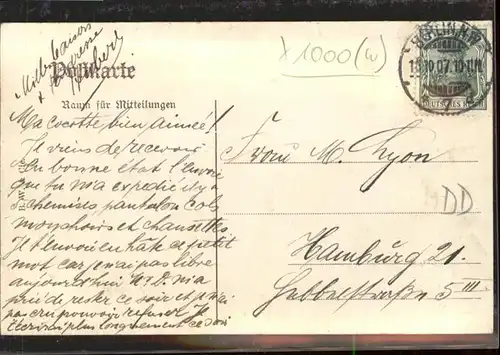 Mille baisers
& caresse
Hubert
Postkarte
Raum für Mitteilungen
Ma cocotte bien aimée!
Je viens de recevoir
en bonne état l'envoi
que tu m'a expédié il y a
3 chemises, pantalon cols
mouchoirs et chaussettes.
Je t'envoie en hâte ce petit
mot car je n'ai pas libre
aujourd'hui N. B. m'a
prié de rester ce soir et
pas cru pouvoir refuser. Je
t'écrirai plus longuement ce soir
x 1000 (w)
BERLIN N.W.
10 07. 10-11V.
DEUTSCHES REICH
Frau M. Lyon
DD
Hamburg 21.
Hebbelstraße 5 III